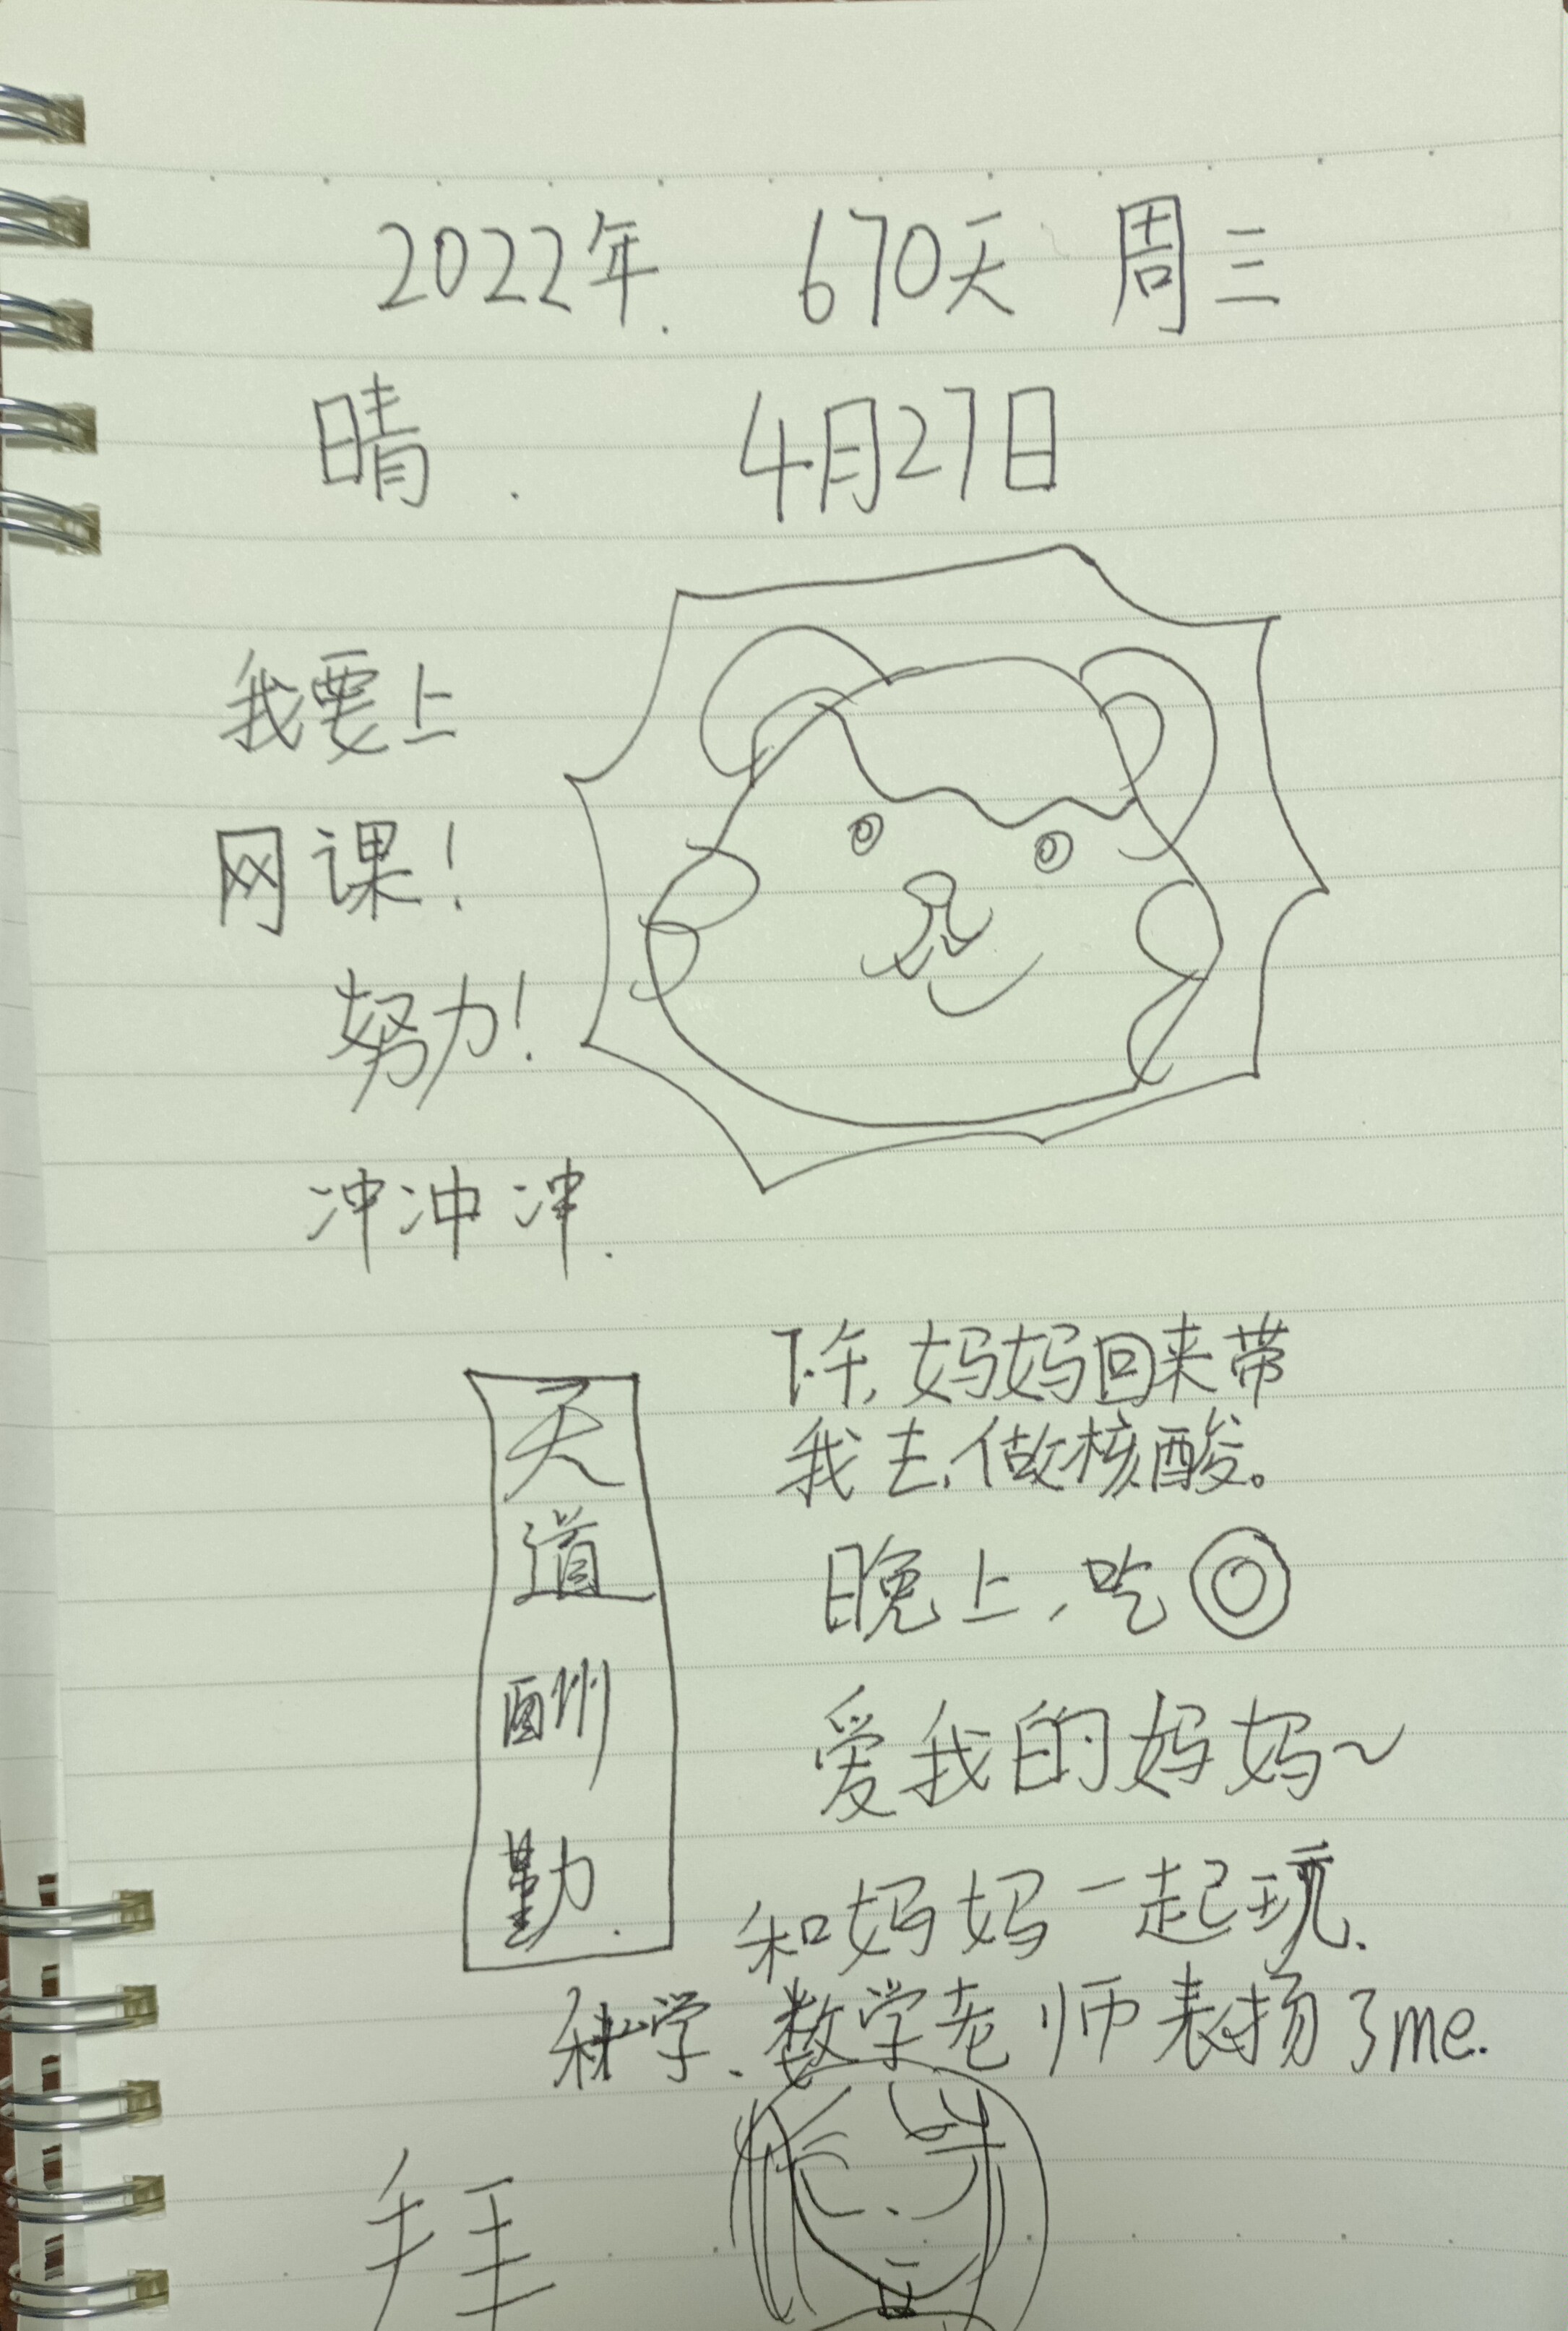 2022年. 670天 周三
晴. 4月27日
我要上
网课!
努力!
冲冲冲.
天
道
酬
勤.
下午,妈妈回来带
我去,做核酸。
晚上,吃
爱我的妈妈~
和妈妈一起玩.
科学、数学老师表扬了me.
拜